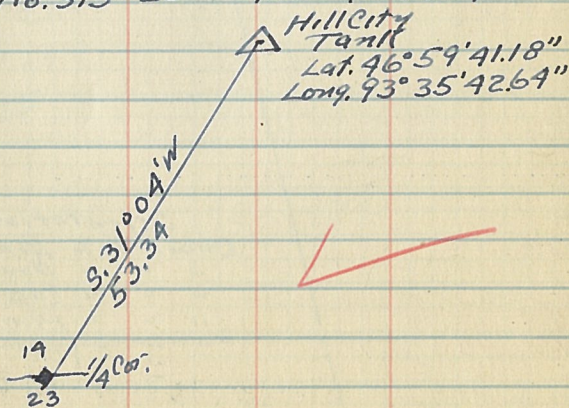 Hill City
Tank
Lat. 46°59'41.18"
Long. 93°35'42.64"
S.31°04'W
53.34
14
1/4 Cor.
23